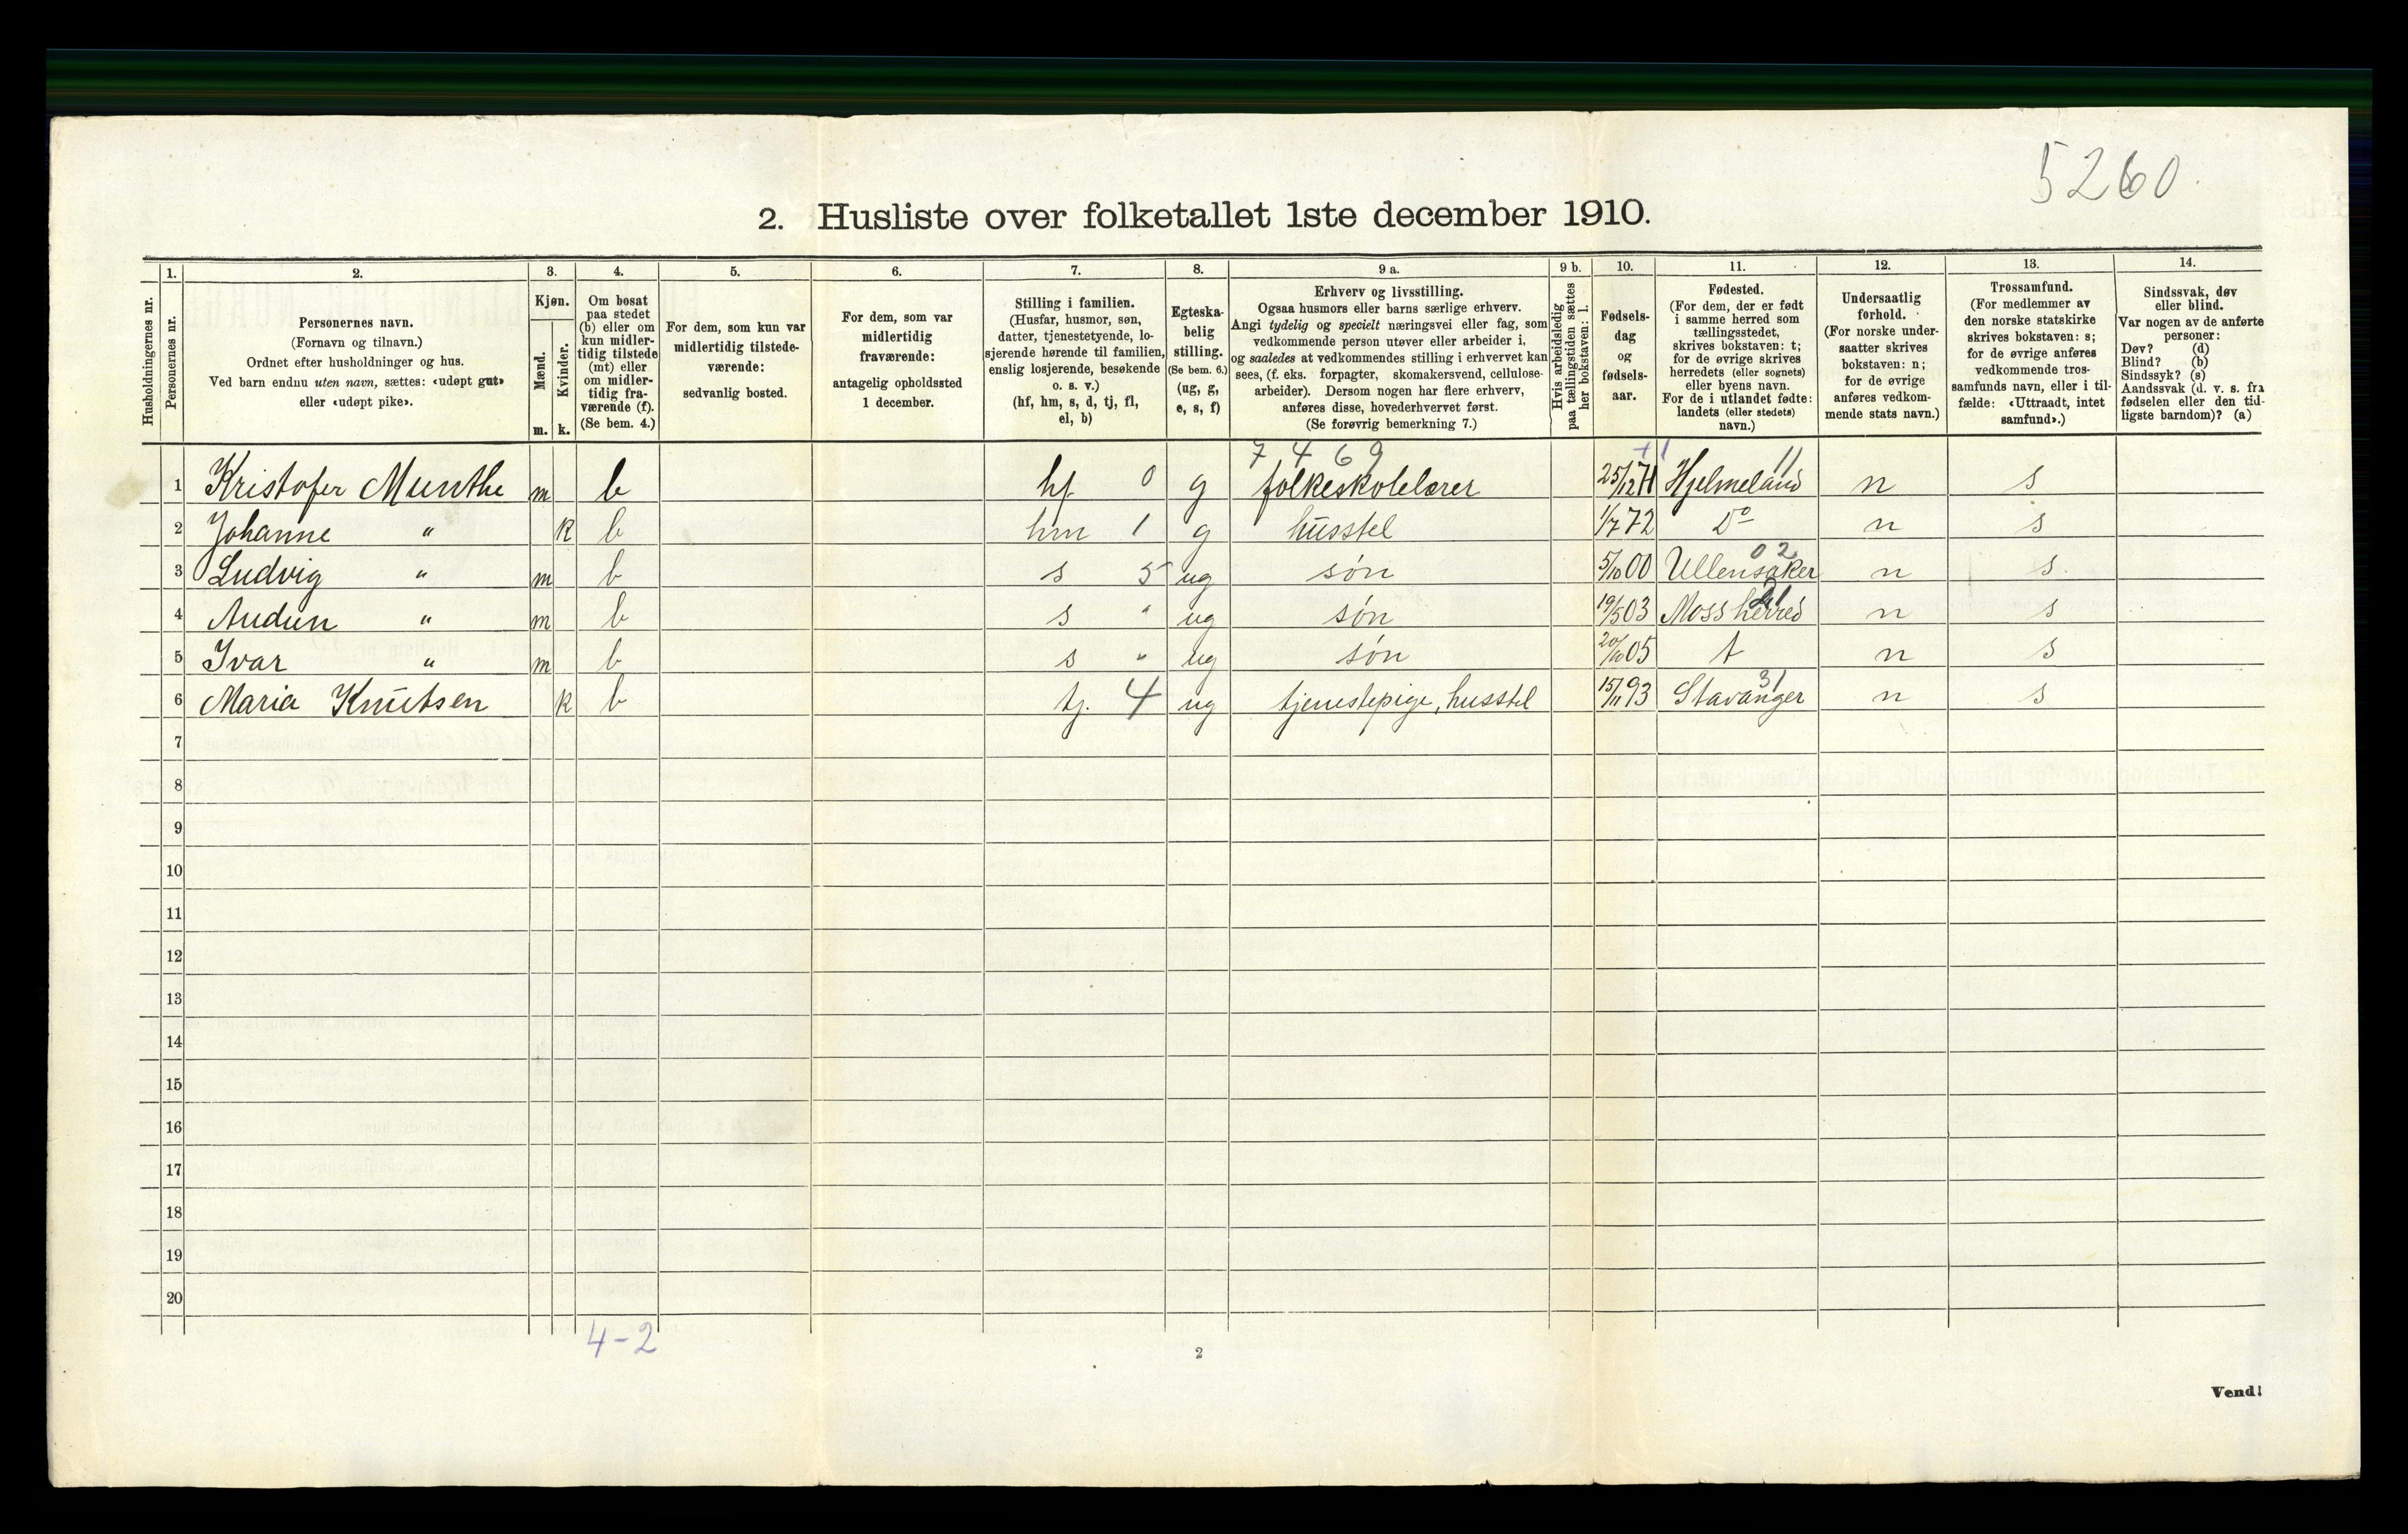 5260
2. Husliste over folketallet 1ste december 1910.
Husholdningernes nr.
1.
Personernes nr.
2.
Personernes navn.
(Fornavn og tilnavn.)
Ordnet efter husholdninger og hus.
Ved barn endnu uten navn, sættes: «udøpt gut»
eller «udøpt pike».
3.
Kjøn.
Mænd.
Kvinder.
m. k.
4.
Om bosat
paa stedet
(b) eller om
kun midler-
tidig tilstede
(mt) eller
om midler-
tidig fra-
værende (f).
(Se bem. 4.)
5.
For dem, som kun var
midlertidig tilstede-
værende:
sedvanlig bosted.
6.
For dem, som var
midlertidig
fraværende:
antagelig opholdssted
1 december.
7.
Stilling i familien.
(Husfar, husmor, søn,
datter, tjenestetyende, lo-
sjerende hørende til familien,
enslig losjerende, besøkende
o. s. v.)
(hf, hm, s, d, tj, fl,
el, b)
8.
Egteska-
belig
stilling.
(Se bem. 6.)
(ug, g,
e, s, f)
9 a.
Erhverv og livsstilling.
Ogsaa husmors eller barns særlige erhverv.
Angi tydelig og specielt næringsvei eller fag, som
vedkommende person utøver eller arbeider i,
og saaledes at vedkommendes stilling i erhvervet kan
sees, (f. eks. forpagter, skomakersvend, cellulose-
arbeider). Dersom nogen har flere erhverv,
anføres disse, hovederhvervet først.
(Se forøvrig bemerkning 7.)
9 b.
Hvis arbeidsledig
paa tællingstiden sættes
her bokstaven: l.
10.
Fødsels-
dag
og
fødsels-
aar.
11.
Fødested.
(For dem, der er født
i samme herred som
tællingsstedet,
skrives bokstaven: t;
for de øvrige skrives
herredets (eller sognets)
eller byens navn.
For de i utlandet fødte:
landets (eller stedets)
navn.)
12.
Undersaatlig
forhold.
(For norske under-
saatter skrives
bokstaven: n;
for de øvrige
anføres vedkom-
mende stats navn.)
13.
Trossamfund.
(For medlemmer av
den norske statskirke
skrives bokstaven: s;
for de øvrige anføres
vedkommende tros-
samfunds navn, eller i til-
fælde: «Uttraadt, intet
samfund».)
14.
Sindssvak, døv
eller blind.
Var nogen av de anførte
personer:
Døv? (d)
Blind? (b)
Sindssyk? (s)
Aandssvak (d. v. s. fra
fødselen eller den tid-
ligste barndom)? (a)
7 4 6 9 +1 11
1 Kristofer Munthe m b hf 0 g folkeskolelærer 25/12 71 Hjelmeland n s
2 Johanne " k b hm 1 g husstel 1/7 72 Do n s
02
3 Ludvig " m b s 5 ug søn 5/10 00 Ullensaker n s
4 Audun " m b s " ug søn 19/5 03 Moss herred n s
5 Ivar " m b s " ug søn 20/10 05 t n s
31
6 Maria Knutsen k b tj. 4 ug tjenestepige, husstel 15/11 93 Stavanger n s
7
8
9
10
11
12
13
14
15
16
17
18
19
20
4-2
2
Vend!